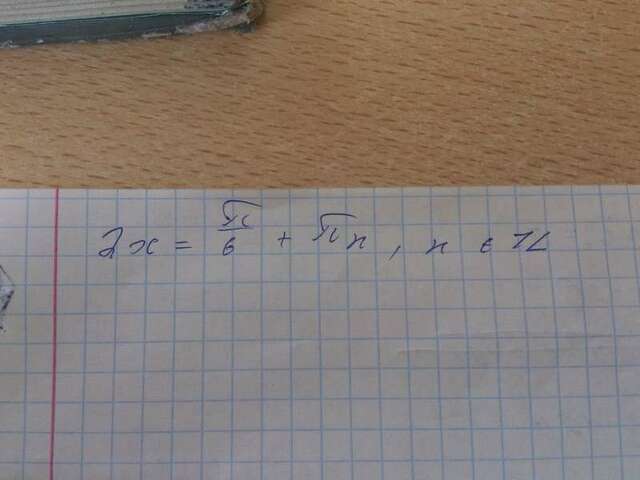 2x = π/9 + πn, n ∈ Z